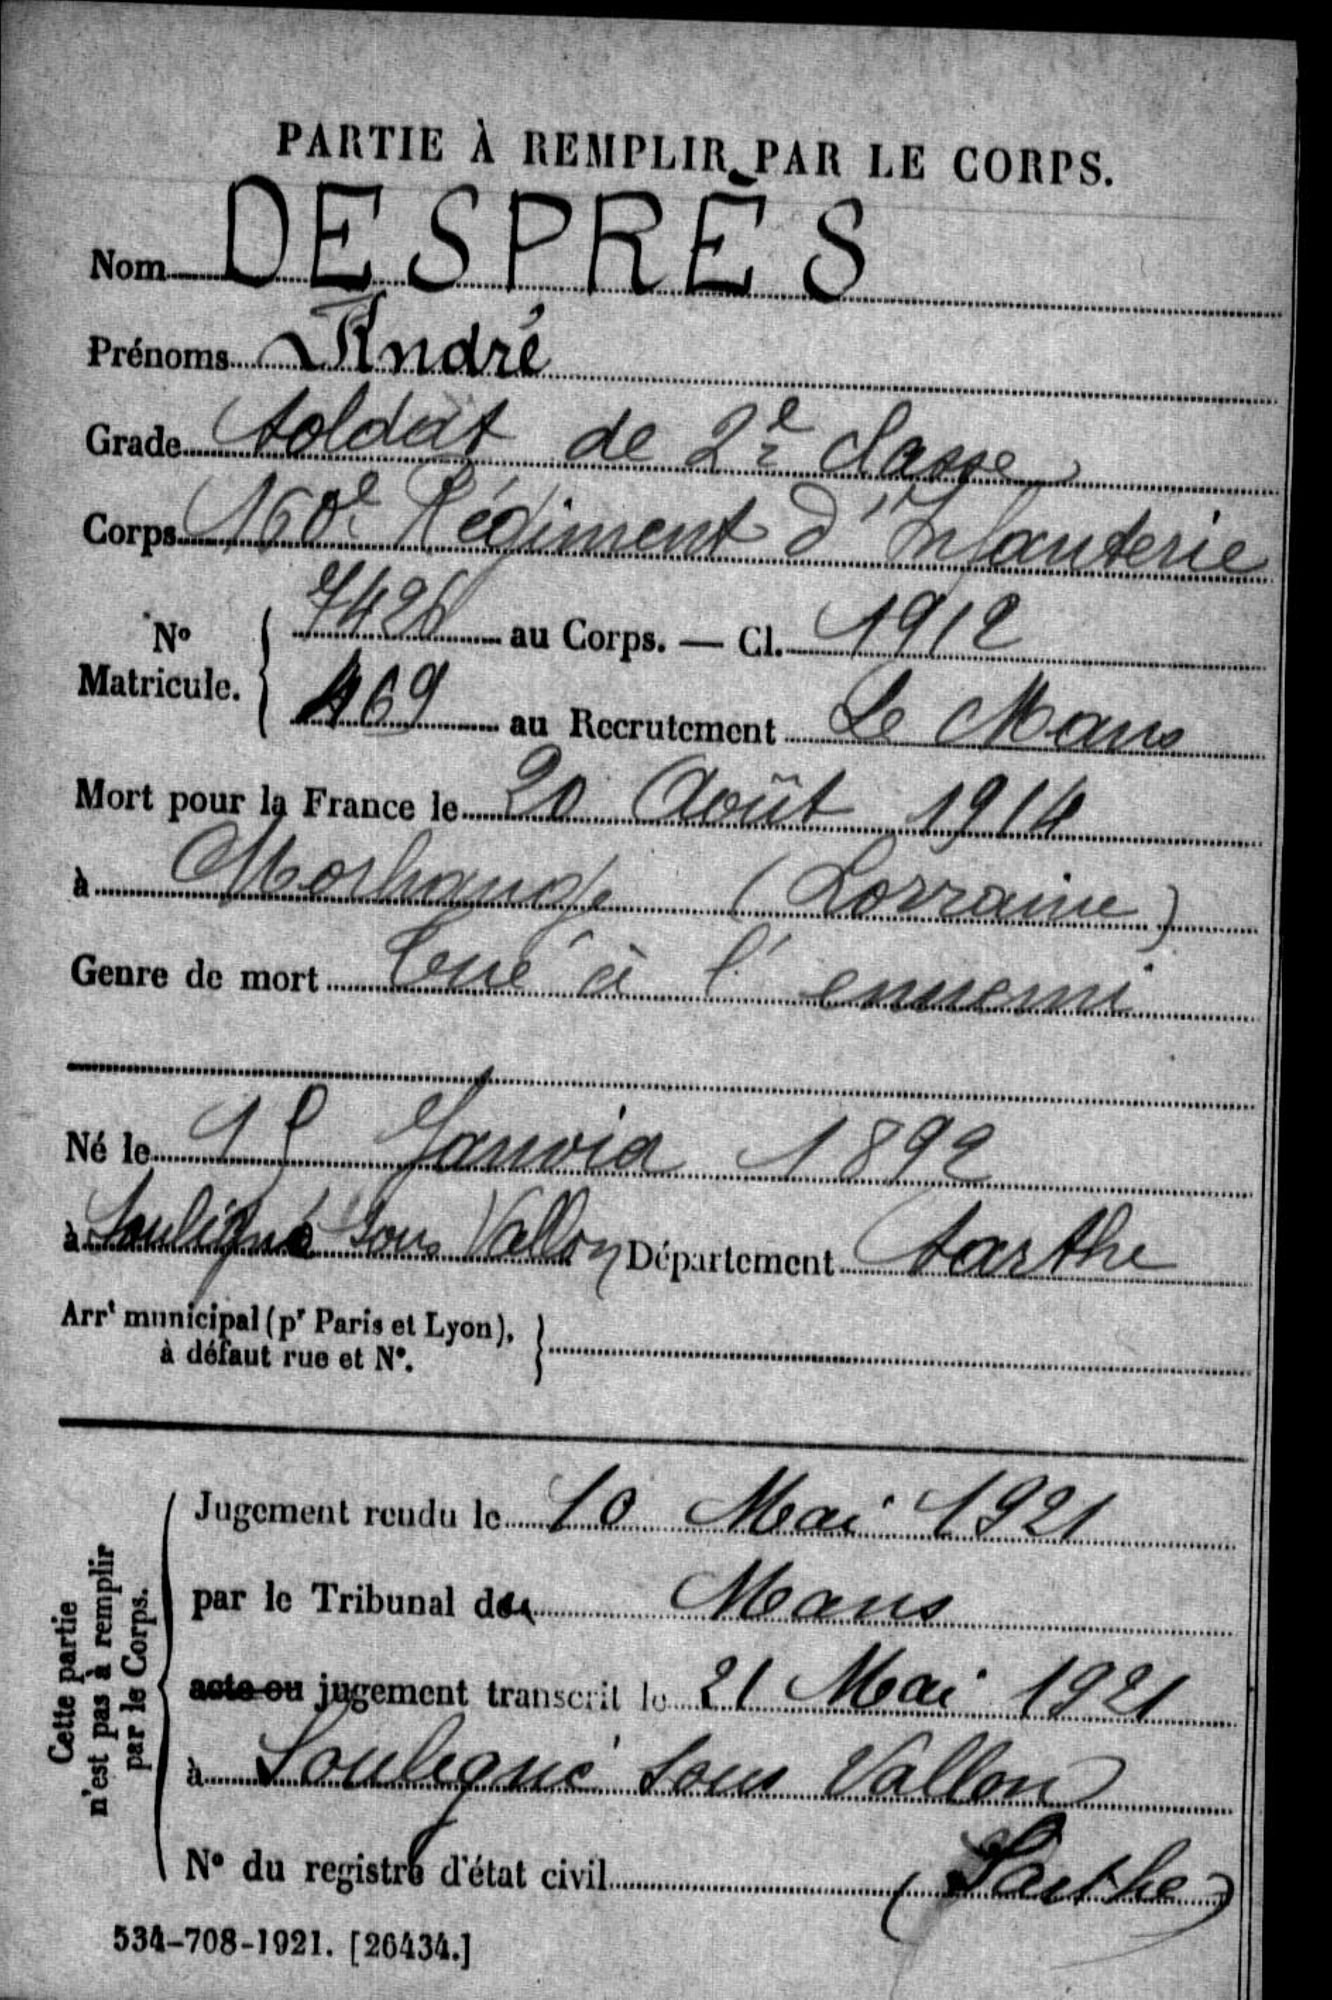 PARTIE À REMPLIR PAR LE CORPS.
Nom DESPRÈS
Prénoms André
Grade Soldat de 2e Classe
Corps 160e Régiment d'Infanterie
No Matricule. { 7426 au Corps. — Cl. 1912
469 au Recrutement Le Mans
Mort pour la France le 20 Août 1914
à Morhange (Lorraine)
Genre de mort Tué à l'ennemi
Né le 15 Janvier 1892
à Souligné sous Vallon Département Sarthe
Arrt municipal (pr Paris et Lyon), à défaut rue et No. }
Cette partie n'est pas à remplir par le Corps.
Jugement rendu le 10 Mai 1921
par le Tribunal du Mans
acte ou jugement transcrit le 21 Mai 1921
à Souligné sous Vallon
No du registre d'état civil (Sarthe)
534-708-1921. [26434.]